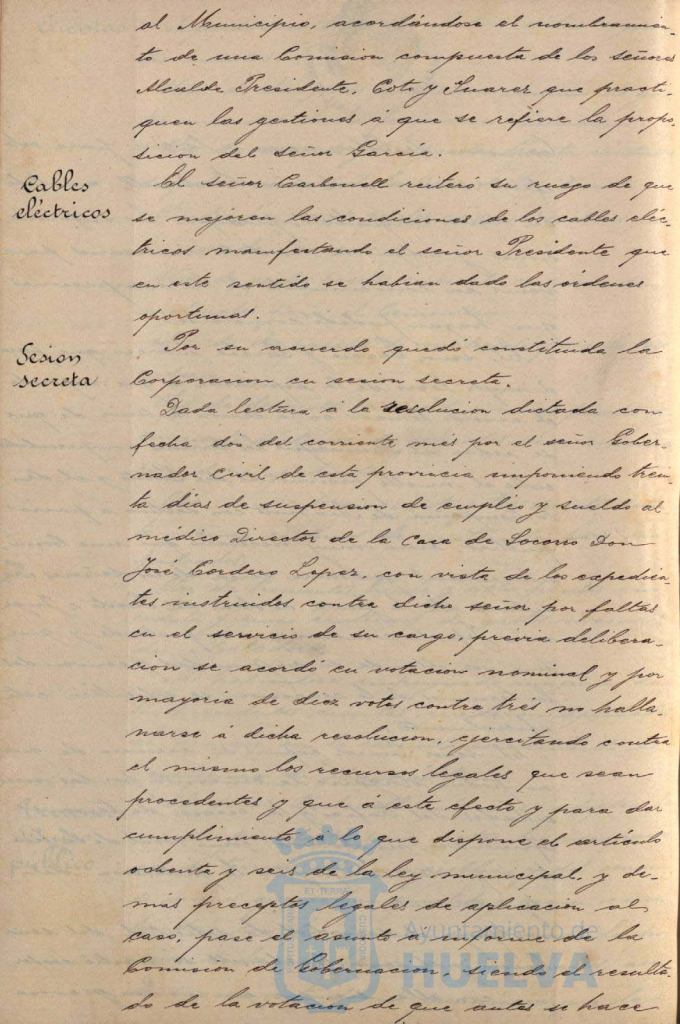 al Municipio, acordándose el nombramien-
to de una Comision compuesta de los señores
Alcalde Presidente, Coto y Suarez que practi-
quen las gestiones á que se refiere la propo-
sicion del señor García.
Cables
eléctricos
El señor Carbonell reiteró su ruego de que
se mejoren las condiciones de los cables eléc-
tricos manifestando el señor Presidente que
en este sentido se habian dado las órdenes
oportunas.
Sesion
secreta
Por su acuerdo quedó constituida la
Corporacion en sesion secreta.
Dada lectura á la resolucion dictada con
fecha dos del corriente més por el señor Gober-
nador Civil de esta provincia imponiendo trein-
ta días de suspension de empléo y sueldo al
médico Director de la Casa de Socorro Don
José Cordero Lopez, con vista de los expedien-
tes instruidos contra dicho señor por faltas
en el servicio de su cargo, previa delibera-
cion se acordó en votacion nominal y por
mayoria de diez votos contra trés no halla-
narse á dicha resolucion, ejercitando contra
el mismo los recursos legales que sean
procedentes y que á este efecto y para dar
cumplimiento á lo que dispone el artículo
ochenta y seis de la ley municipal, y de-
más preceptos legales de aplicacion al
caso, pase el asunto á informe de la
Comision de Gobernacion, siendo el resulta-
do de la votacion de que antes se hace
Ayuntamiento de
HUELVA